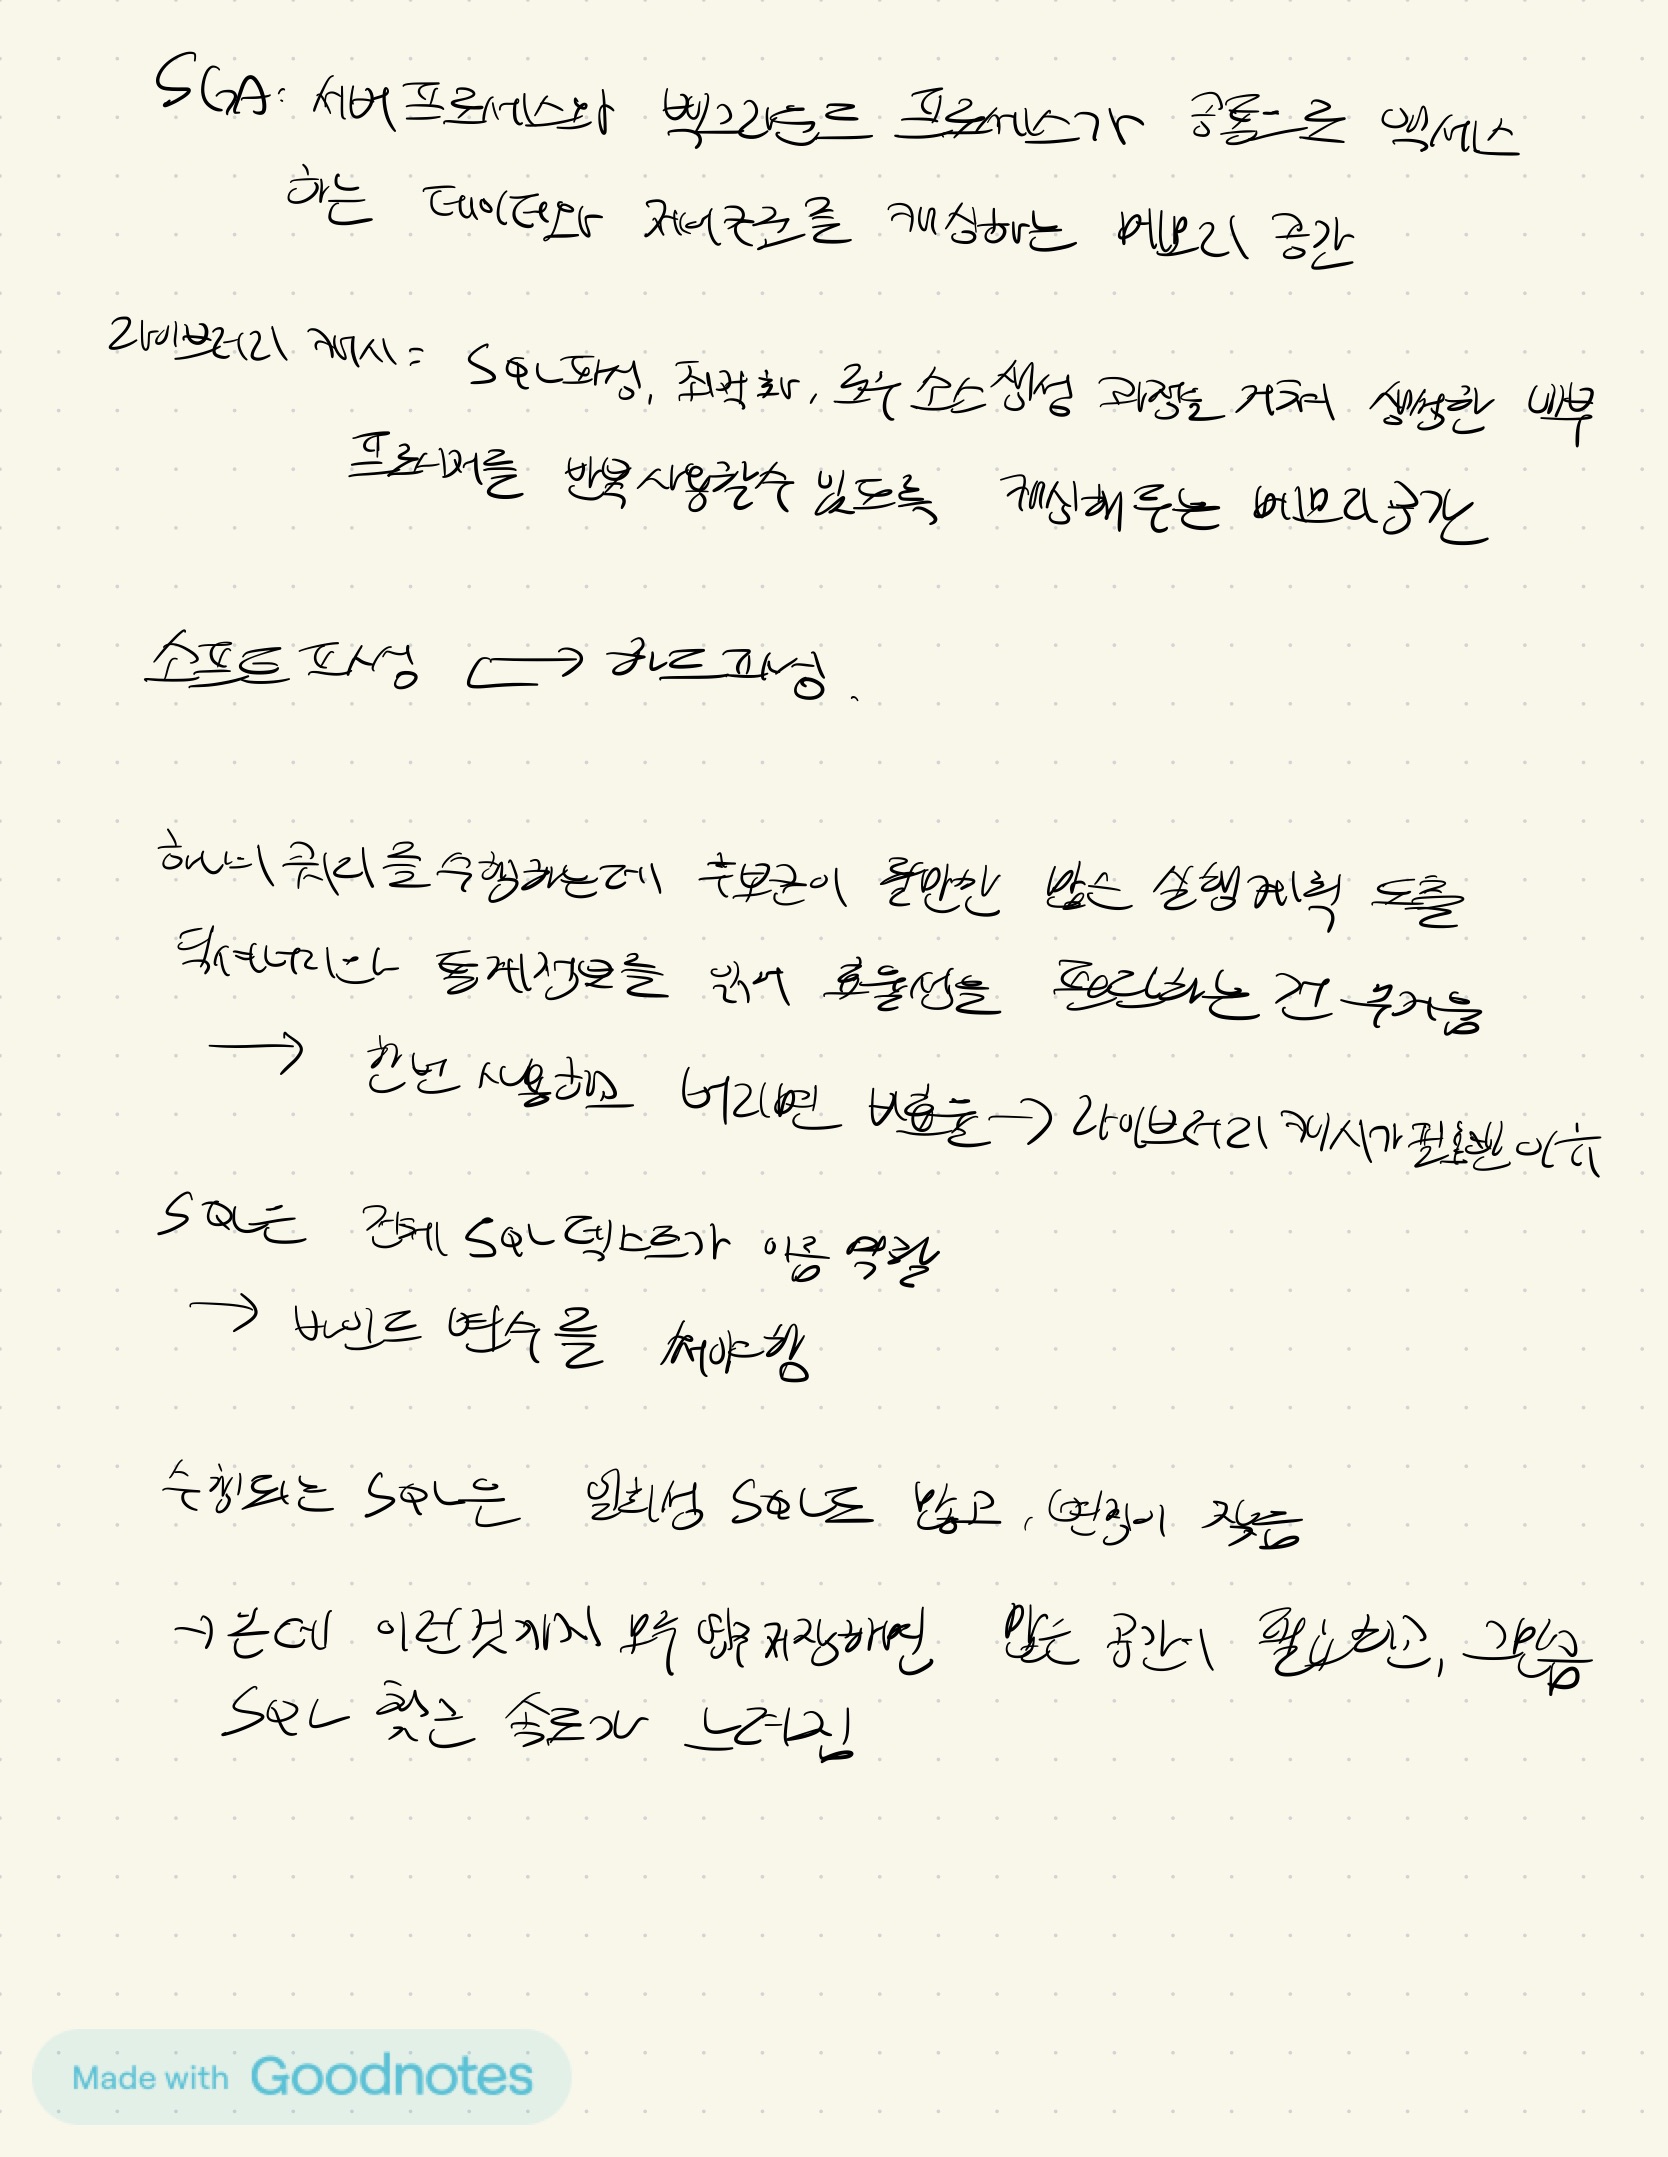 SGA: 서버 프로세스와 백그라운드 프로세스가 공통으로 액세스
하는 데이터와 제어구조를 캐싱하는 메모리 공간
라이브러리 캐시: SQL파싱, 최적화, 로우 소스 생성 과정을 거쳐 생성한 내부
프로시저를 반복 사용할 수 있도록 캐싱해 두는 메모리공간
소프트 파싱 ↔ 하드파싱.
하나의 쿼리를 수행하는데 후보군이 될만한 많은 실행계획 도출
딕셔너리와 통계정보를 읽어 효율성을 판단하는 건 무거움
→ 한번 사용하고 버리면 비효율 → 라이브러리 캐시가 필요한 이유
SQL은 전체 SQL 텍스트가 이름 역할
→ 바인드 변수를 써야함
수행되는 SQL은 일회성 SQL도 많고, 변경이 잦음
→ 근데 이런것까지 모두 저장하면 많은 공간이 필요하고, 그만큼
SQL 찾는 속도가 느려짐
Made with Goodnotes